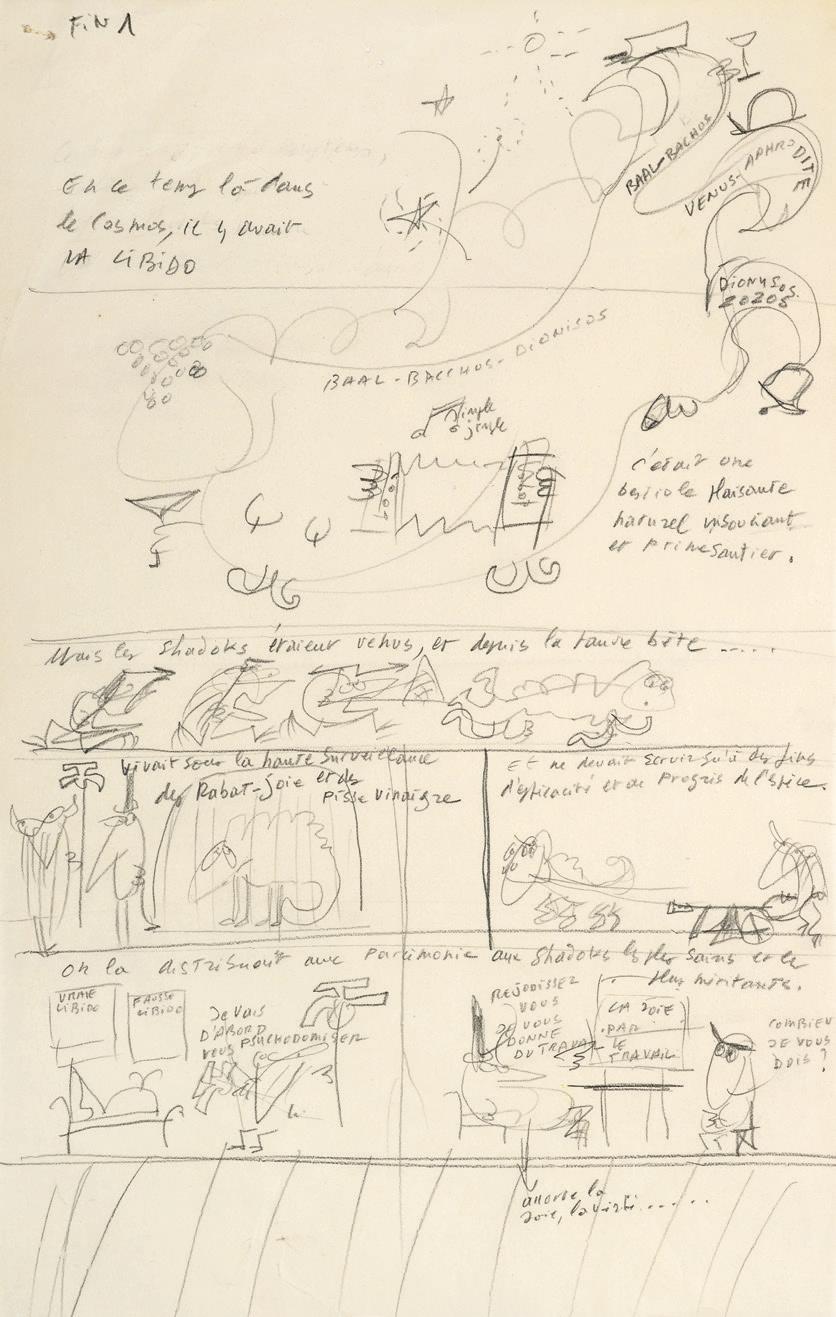 FIN 1
En ce temps là dans
le Cosmos, il y avait
LA LIBIDO
BAAL-BACHOS
VENUS-APHRODITE
DIONYSOS
BAAL-BACCHOS-DIONISOS
jingle
c'était une
bestiole plaisante
naturel insouciant
et primesautier.
Mais les Shadoks étaient venus, et depuis la pauvre bête .....
vivait sous la haute surveillance
des Rabat-Joie et des
pisse vinaigre
Et ne devait servir qu'à des fins
d'efficacité et de progrès de l'espèce.
On la distribuait avec parcimonie aux Shadoks les plus sains et les
plus méritants.
VRAIE
LIBIDO
FAUSSE
LIBIDO
Je VAIS
D'ABORD
VOUS PSYCHODOMISER
REJOUISSEZ
VOUS
JE VOUS
DONNE
DU TRAVAIL
LA JOIE
PAR
LE
TRAVAIL
COMBIEN
JE VOUS
DOIS ?
la
Joie,